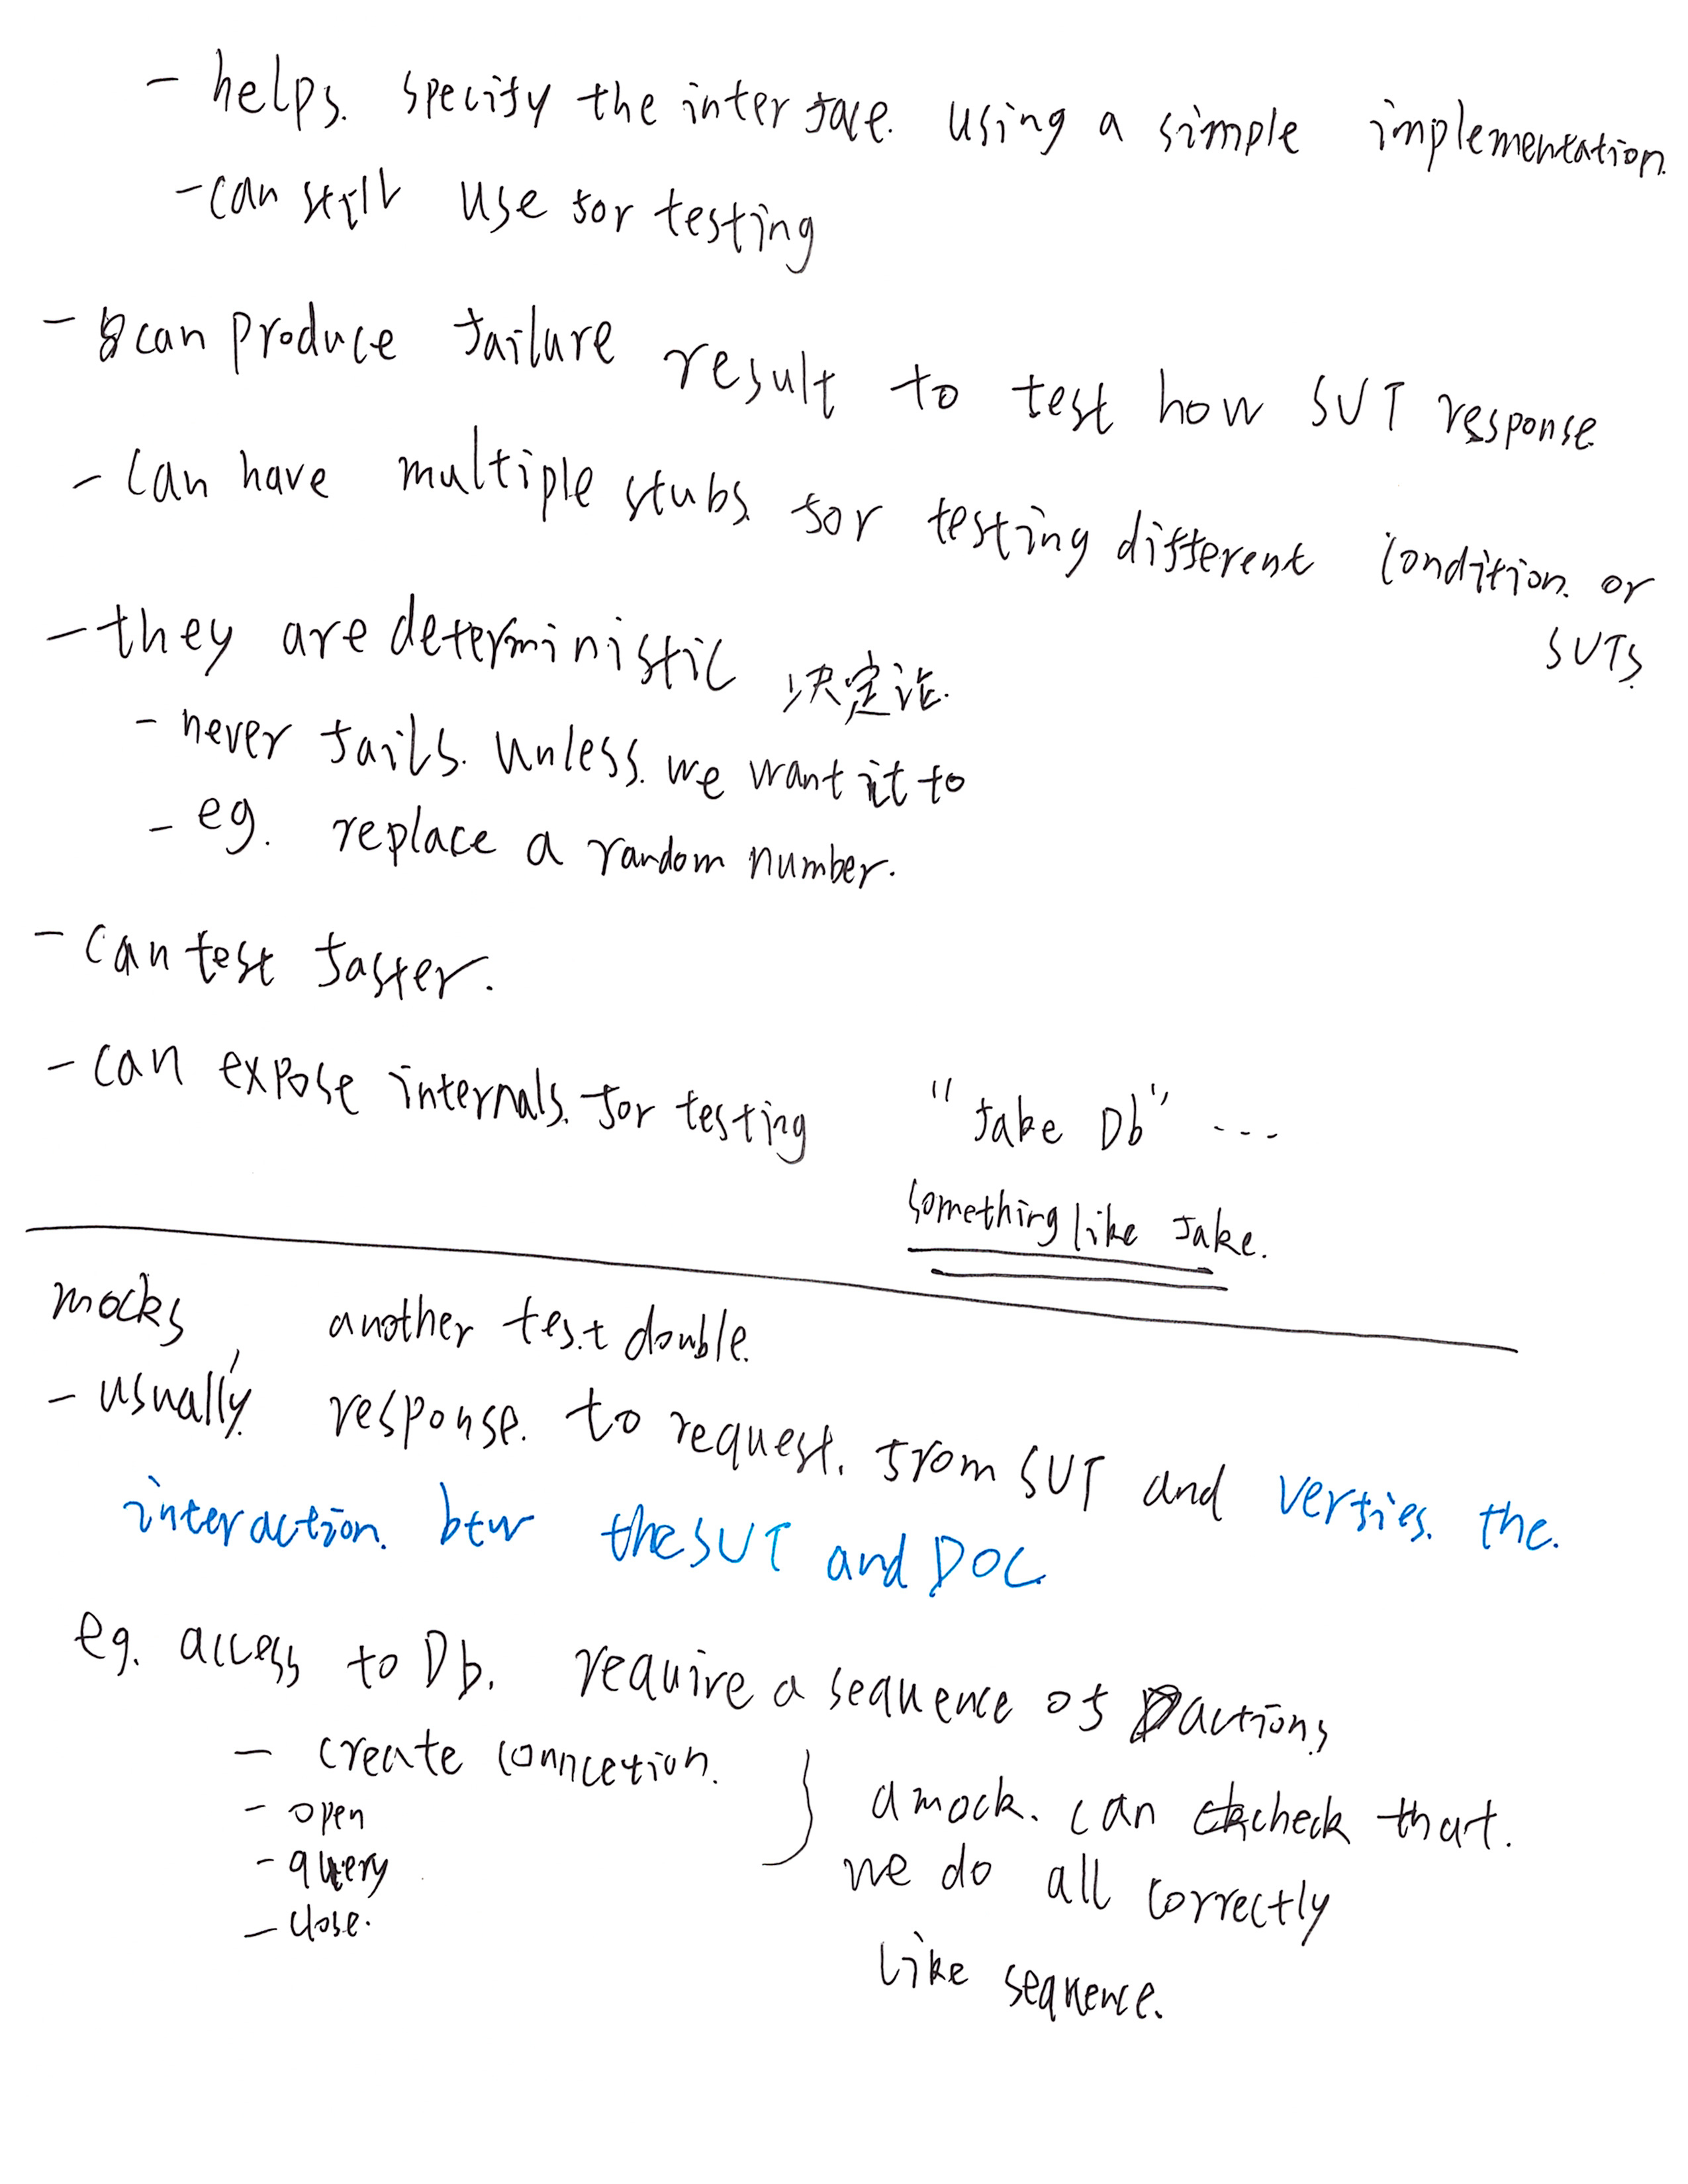 - helps specify the interface using a simple implementation
- can still use for testing
- can produce failure result to test how SUT response
- can have multiple stubs for testing different condition or
SUTs
- they are deterministic 决定论
- never fails unless we want it to
- eg. replace a random number.
- can test faster.
- can expose internals for testing
"fake Db" ...
something like fake.
mocks another test double.
- usually response to request from SUT and verfies the
interaction btw the SUT and DOC
eg. access to Db. require a sequence of actions
- create conncetion.
- open
- query
- close.
a mock can check that
we do all correctly
like sequence.